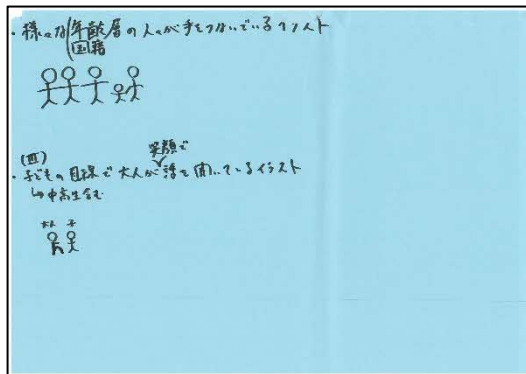 ・様々な(年齢層の人々が手をつないでいるイラスト
国籍
(皿)
笑顔で
・子どもの目線で大人が話を聞いているイラスト
↳中高生含む
大人 子